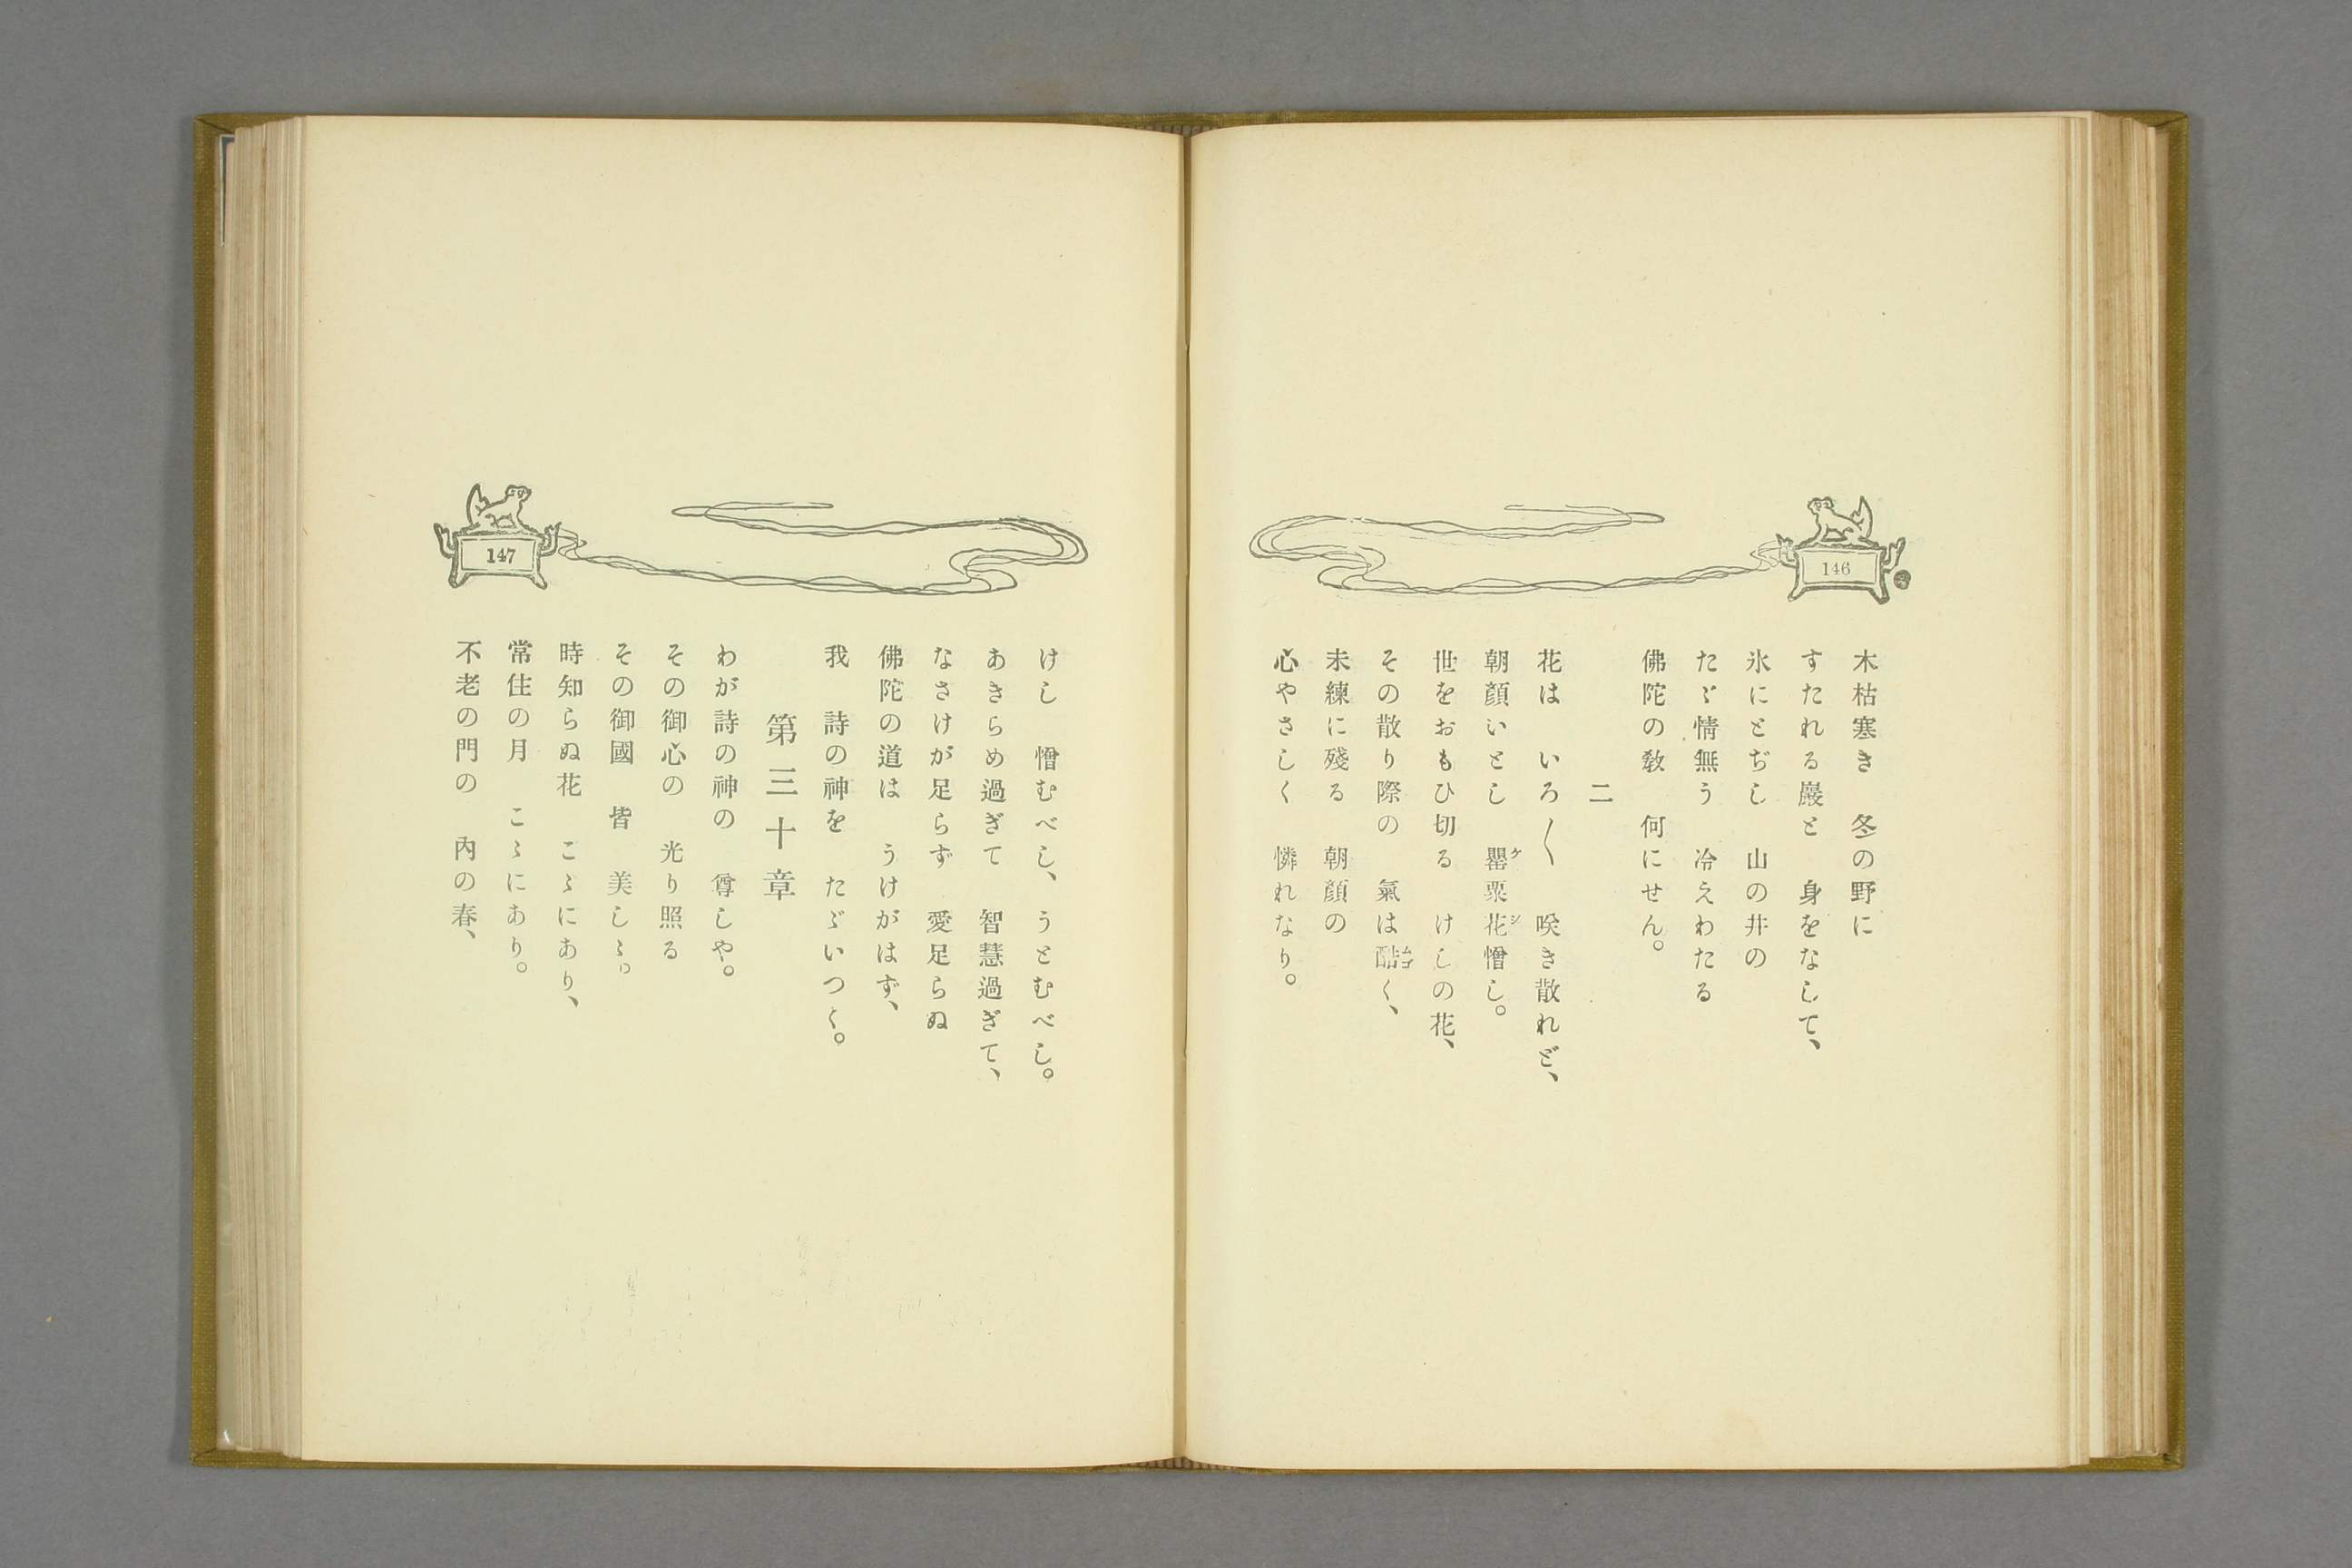 146
木枯寒き　冬の野に
すたれる巖と　身をなして、
氷にとぢし　山の井の
たゞ情無う　冷えわたる
佛陀の教　何にせん。
二
花は　いろ〱　咲き散れど、
朝顔いとし　罌粟花憎し。
ケシ
世をおもひ切る　けしの花、
その散り際の　氣は酷く、
未練に殘る　朝顔の
心やさしく　憐れなり。
147
けし　憎むべし、うとむべし。
あきらめ過ぎて　智慧過ぎて、
なさけが足らず　愛足らぬ
佛陀の道は　うけがはず、
我　詩の神を　たゞいつく。
第三十章
わが詩の神の　尊しや。
その御心の　光り照る
その御國　皆　美しゝ。
時知らぬ花　こゝにあり、
常住の月　こゝにあり。
不老の門の　內の春、